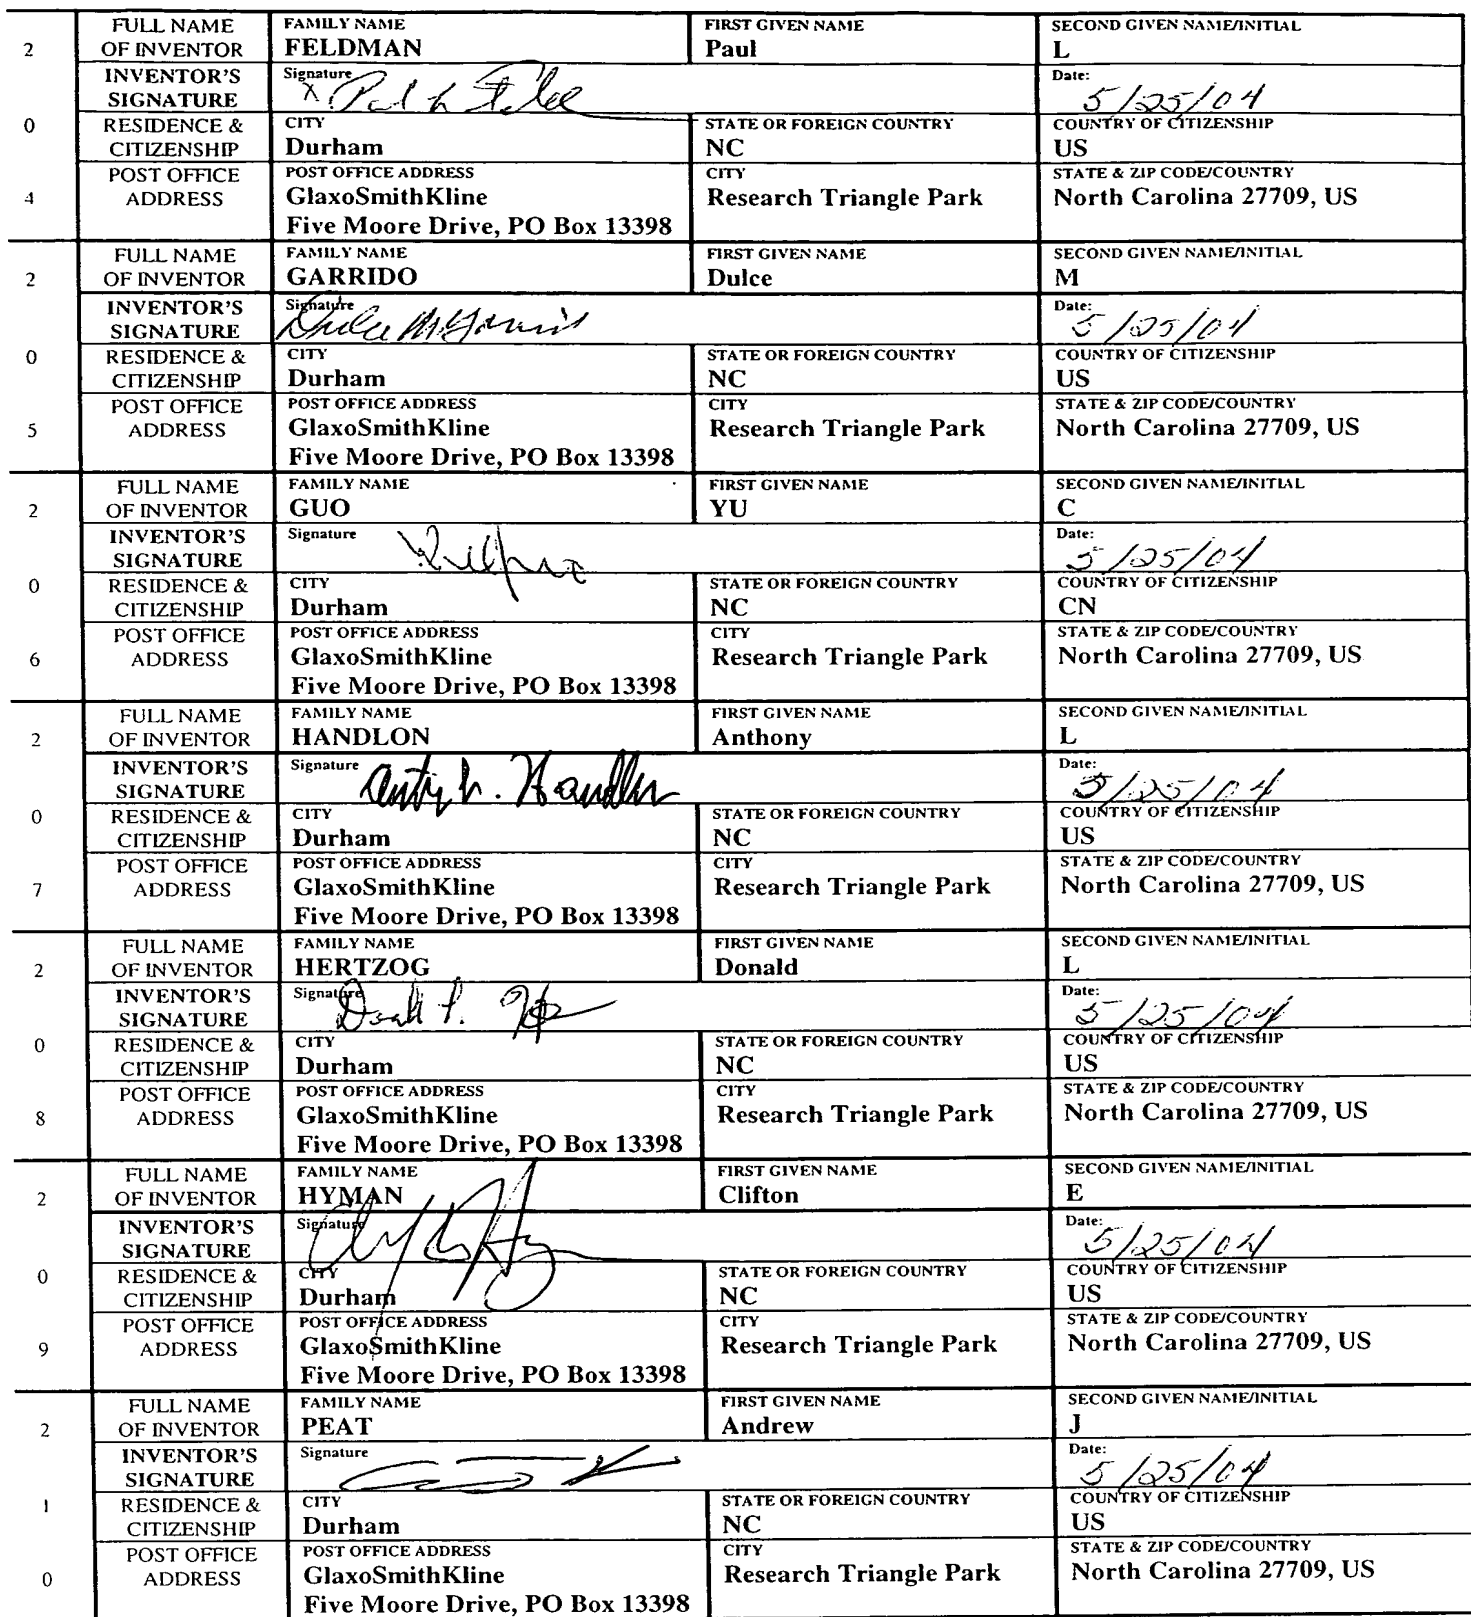 2 FULL NAME OF INVENTOR FAMILY NAME FELDMAN FIRST GIVEN NAME Paul SECOND GIVEN NAME/INITIAL L
INVENTOR'S SIGNATURE Signature X Date: 5/25/04
0 RESIDENCE & CITIZENSHIP CITY Durham STATE OR FOREIGN COUNTRY NC COUNTRY OF CITIZENSHIP US
4 POST OFFICE ADDRESS POST OFFICE ADDRESS GlaxoSmithKline CITY Research Triangle Park STATE & ZIP CODE/COUNTRY North Carolina 27709, US
Five Moore Drive, PO Box 13398
2 FULL NAME OF INVENTOR FAMILY NAME GARRIDO FIRST GIVEN NAME Dulce SECOND GIVEN NAME/INITIAL M
INVENTOR'S SIGNATURE Signature Date: 5/25/04
0 RESIDENCE & CITIZENSHIP CITY Durham STATE OR FOREIGN COUNTRY NC COUNTRY OF CITIZENSHIP US
5 POST OFFICE ADDRESS POST OFFICE ADDRESS GlaxoSmithKline CITY Research Triangle Park STATE & ZIP CODE/COUNTRY North Carolina 27709, US
Five Moore Drive, PO Box 13398
2 FULL NAME OF INVENTOR FAMILY NAME GUO FIRST GIVEN NAME YU SECOND GIVEN NAME/INITIAL C
INVENTOR'S SIGNATURE Signature Date: 5/25/04
0 RESIDENCE & CITIZENSHIP CITY Durham STATE OR FOREIGN COUNTRY NC COUNTRY OF CITIZENSHIP CN
6 POST OFFICE ADDRESS POST OFFICE ADDRESS GlaxoSmithKline CITY Research Triangle Park STATE & ZIP CODE/COUNTRY North Carolina 27709, US
Five Moore Drive, PO Box 13398
2 FULL NAME OF INVENTOR FAMILY NAME HANDLON FIRST GIVEN NAME Anthony SECOND GIVEN NAME/INITIAL L
INVENTOR'S SIGNATURE Signature Date: 5/25/04
0 RESIDENCE & CITIZENSHIP CITY Durham STATE OR FOREIGN COUNTRY NC COUNTRY OF CITIZENSHIP US
7 POST OFFICE ADDRESS POST OFFICE ADDRESS GlaxoSmithKline CITY Research Triangle Park STATE & ZIP CODE/COUNTRY North Carolina 27709, US
Five Moore Drive, PO Box 13398
2 FULL NAME OF INVENTOR FAMILY NAME HERTZOG FIRST GIVEN NAME Donald SECOND GIVEN NAME/INITIAL L
INVENTOR'S SIGNATURE Signature Date: 5/25/04
0 RESIDENCE & CITIZENSHIP CITY Durham STATE OR FOREIGN COUNTRY NC COUNTRY OF CITIZENSHIP US
8 POST OFFICE ADDRESS POST OFFICE ADDRESS GlaxoSmithKline CITY Research Triangle Park STATE & ZIP CODE/COUNTRY North Carolina 27709, US
Five Moore Drive, PO Box 13398
2 FULL NAME OF INVENTOR FAMILY NAME HYMAN FIRST GIVEN NAME Clifton SECOND GIVEN NAME/INITIAL E
INVENTOR'S SIGNATURE Signature Date: 5/25/04
0 RESIDENCE & CITIZENSHIP CITY Durham STATE OR FOREIGN COUNTRY NC COUNTRY OF CITIZENSHIP US
9 POST OFFICE ADDRESS POST OFFICE ADDRESS GlaxoSmithKline CITY Research Triangle Park STATE & ZIP CODE/COUNTRY North Carolina 27709, US
Five Moore Drive, PO Box 13398
2 FULL NAME OF INVENTOR FAMILY NAME PEAT FIRST GIVEN NAME Andrew SECOND GIVEN NAME/INITIAL J
INVENTOR'S SIGNATURE Signature Date: 5/25/04
1 RESIDENCE & CITIZENSHIP CITY Durham STATE OR FOREIGN COUNTRY NC COUNTRY OF CITIZENSHIP US
0 POST OFFICE ADDRESS POST OFFICE ADDRESS GlaxoSmithKline CITY Research Triangle Park STATE & ZIP CODE/COUNTRY North Carolina 27709, US
Five Moore Drive, PO Box 13398